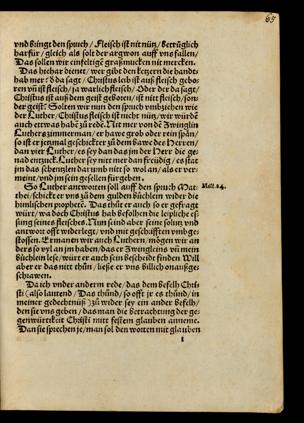 65
vnd bringt den spruch / Fleisch ist nit nütz / Betrüglich
harfür / gleich als solt der argwon auff vns fallen /
Das sollen wir einfeltige graßmucken nit mercken.
Das hiehar dienet / wer gibt den ketzern die handt-
hab mer? So da sagt / Christus leib ist auß fleisch gebo-
ren vñ ist fleisch / ja warlich fleisch / Oder der da sagt /
Christus ist auß dem geist geboren / ist nitt fleisch / son-
der geist? Solten wir nun den spruch vmbziehen wie
der Luther / Christus fleisch ist nicht nütz / wir würdẽ
auch ettwas habẽ zů redẽ. Nit mer von dẽ
Luthers zimmerman / er hawe grob oder
so ist er jetzmal geschickter zů dem bawe des Herren /
dan vier Luther / es sey dan das jm der Herr die ge-
nad entzuck. Luther sey nitt mer dan freüdig / es stat
jm das schentzlen dar umb nitt so wol an / als er ver-
meint / vnd jm sein gesellen für geben.
So Luther antworten soll auff den spruch Mat-
thei / schickt er vns zů dem gulden büchlein wider die
himlischen prophetẽ. Das thůt er auch so er gefragt
würt / wa doch Christus hab befolhen die leipliche es-
sung seines fleisches. Nun seind aber seine losung vnd
antwort offt widerlegt / vnd mit geschrifften vmb ge-
stossen. Ermanen wir auch Luthern / mögen wir an
ders so vyl an jm haben / das er Swinglens vñ mein
büchlein lese / würt er auch sein bescheide finden Will
aber er das nitt thůn / ließe er vns billich onaußge-
schrawen.
Da ich vnder anderm rede / das dem befelh Chri-
sti (also lautend / Das thůnd / so offt jr es thůnd / in
meiner gedechtnuß) zů wider sey ein ander befelh /
den sie vns geben / das man die betrachtung der ge-
genwürtikeit Christi mitt festem glauben anneme.
Dan sie sprechen je / man sol den worten mit glauben
Matt. 24.